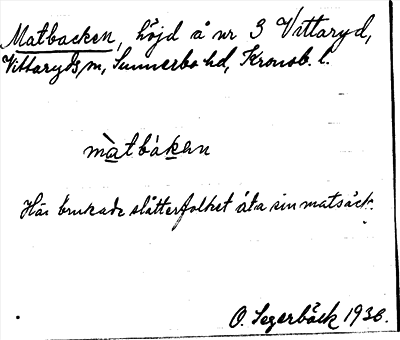 Matbacken, höjd å nr 3 Vittaryd,
Vittaryds sn, Sunnerbo hd, Kronob. l.
màtbáken
Här brukade slåtterfolket äta sin matsäck.
O. Segerbäck 1936.